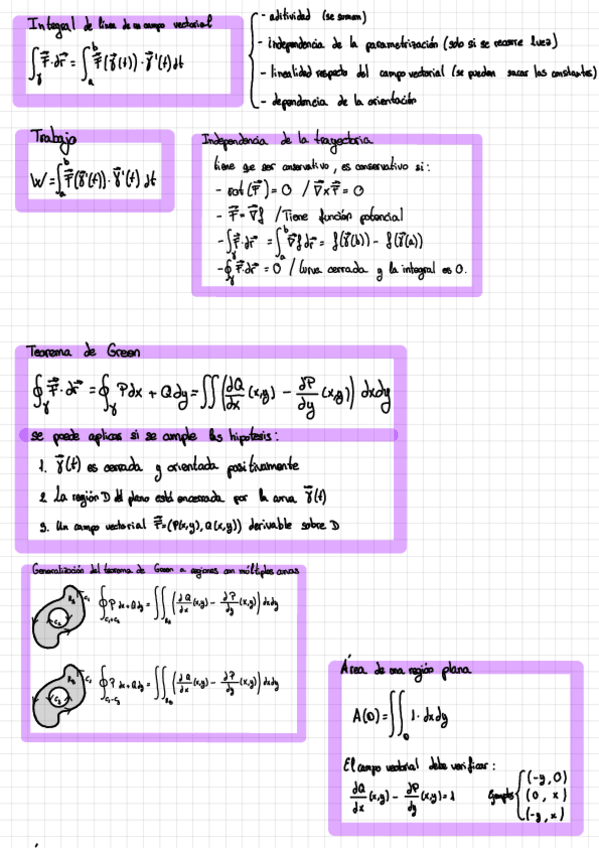 Integral de línea de un campo vectorial
∫_γ F⃗·dr⃗ = ∫_a^b F⃗(γ⃗(t))·γ⃗'(t)dt
- aditividad (se suman)
- independencia de la parametrización (solo si se recorre 1 vez)
- linealidad respecto del campo vectorial (se pueden sacar las constantes)
- dependencia de la orientación
Trabajo
W = ∫_a^b F⃗(γ⃗(t))·γ⃗'(t) dt
Independencia de la trayectoria
tiene que ser conservativo, es conservativo si:
- rot(F⃗) = 0 / ∇⃗×F⃗ = 0
- F⃗ = ∇⃗f / Tiene función potencial
- ∫_γ F⃗·dr⃗ = ∫_a^b ∇⃗f dr⃗ = f(γ⃗(b)) - f(γ⃗(a))
- ∮_γ F⃗·dr⃗ = 0 / Curva cerrada y la integral es 0.
Teorema de Green
∮_γ F⃗·dr⃗ = ∮_γ Pdx + Qdy = ∬(∂Q/∂x (x,y) - ∂P/∂y (x,y)) dxdy
se puede aplicar si se cumple las hipotesis:
1. γ⃗(t) es cerrada y orientada positivamente
2. La región D del plano está encerrada por la curva γ⃗(t)
3. Un campo vectorial F⃗=(P(x,y), Q(x,y)) derivable sobre D
Generalización del teorema de Green a regiones con múltiples curvas
∮_{C₁+C₂} P dx + Q dy = ∬ (∂Q/∂x (x,y) - ∂P/∂y (x,y)) dxdy
∮_{C₁-C₂} P dx + Q dy = ∬ (∂Q/∂x (x,y) - ∂P/∂y (x,y)) dxdy
Área de una región plana
A(D) = ∬_D 1·dxdy
El campo vectorial debe verificar:
∂Q/∂x (x,y) - ∂P/∂y (x,y) = 1
Ejemplos { (-y, 0)
(0, x)
(-y, x)